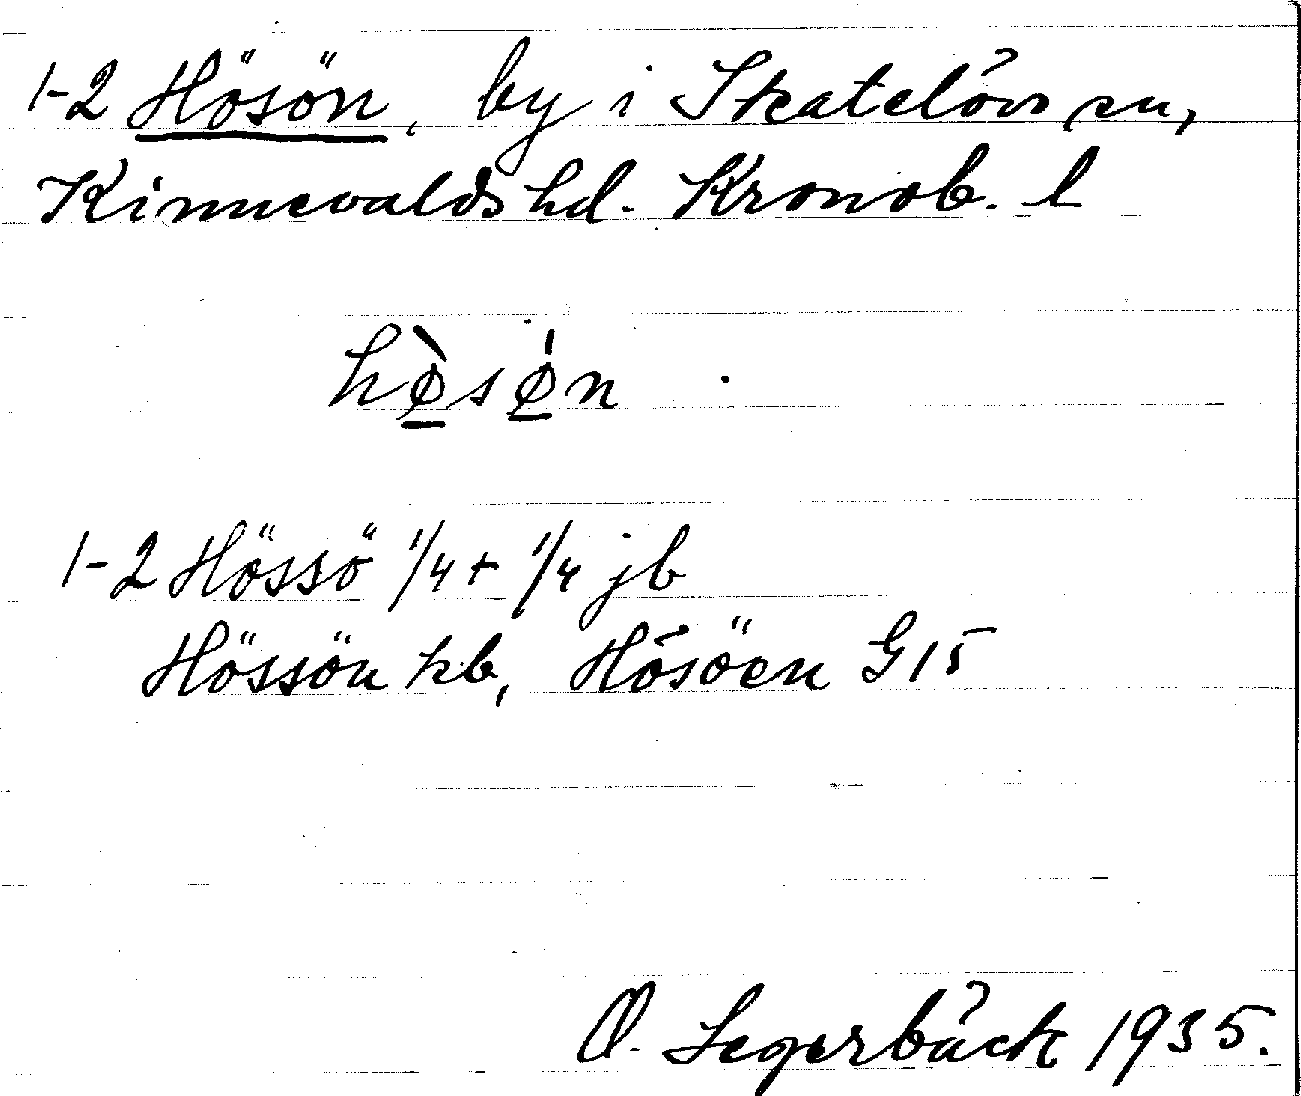 1-2 Hösön, by i Skatelövs sn,
Kinnevalds hd. Kronob. l
hø̀sǿn
1-2 Hössö 1/4 + 1/4 jb
Hössön kb, Hösöen G15
O. Segerbäck 1935.